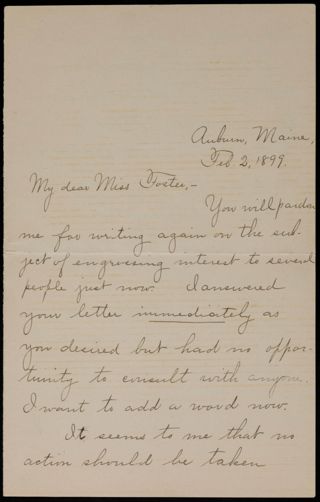 Auburn, Maine,
Feb. 2, 1899.
My dear Miss Foster,-
You will pardon
me for writing again on the sub-
ject of engrossing interest to several
people just now. I answered
your letter immediately as
you desired but had no oppor-
tunity to consult with anyone.
I want to add a word now.
It seems to me that no
action should be taken